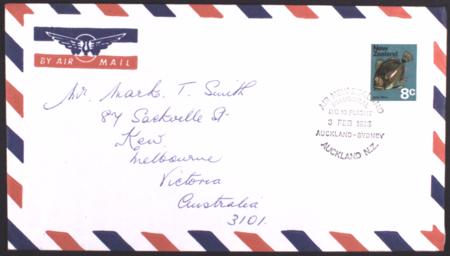 BY AIR MAIL
New Zealand
8c
AIR NEW ZEALAND
INAUGURAL
DC 10 FLIGHT
3 FEB 1973
AUCKLAND-SYDNEY
AUCKLAND N.Z.
Mr. Mark T. Smith
84 Sackville St
Kew
Melbourne
Victoria
Australia
3101.